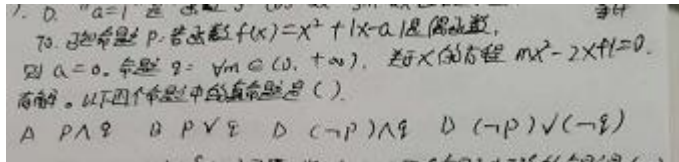 7. D. "a=1 是
70. 已知命题 P. 若函数 f(x)=x²+|x-a|是偶函数,
则 a=0. 命题 q: ∀m∈(0, +∞), 关于X的方程 mx²-2x+1=0.
有解。以下四个命题中的真命题是( ).
A P∧q B P∨q D (¬p)∧q D (¬p)∨(¬q)